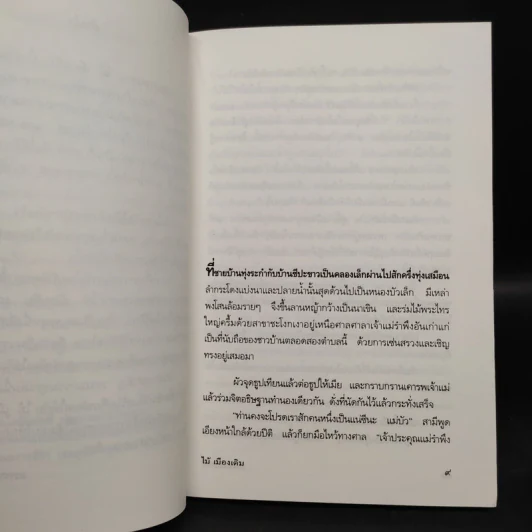 ที่ชายบ้านทุ่งระกำกับบ้านชีปะขาวเป็นคลองเล็กผ่านไปสักครึ่งทุ่งเสมือน
ลำกระโดงแบ่งนาและปลายน้ำนั้นสุดด้วนไปเป็นหนองบัวเล็ก มีเหล่า
พงโสนล้อมรายๆ จึงขึ้นลานหญ้ากว้างเป็นนาเขิน และร่มไม้พระไทร
ใหญ่ครึ้มด้วยสาขาชะโงกเงาอยู่เหนือศาลศาลาเจ้าแม่รำพึงอันเก่าแก่
เป็นที่นับถือของชาวบ้านตลอดสองตำบลนี้ ด้วยการเซ่นสรวงและเชิญ
ทรงอยู่เสมอมา
ผัวจุดธูปเทียนแล้วต่อธูปให้เมีย และกราบกรานเคารพเจ้าแม่
แล้วร่วมจิตอธิษฐานทำนองเดียวกัน ดั่งที่นัดกันไว้แล้วกระทั่งเสร็จ
"ท่านคงจะโปรดเราสักคนหนึ่งเป็นแน่ซีนะ แม่บัว" สามีพูด
เอียงหน้าใกล้ด้วยปีติ แล้วก็ยกมือไหว้ทางศาล "เจ้าประคุณแม่รำพึง
ไม้ เมืองเดิม
๙